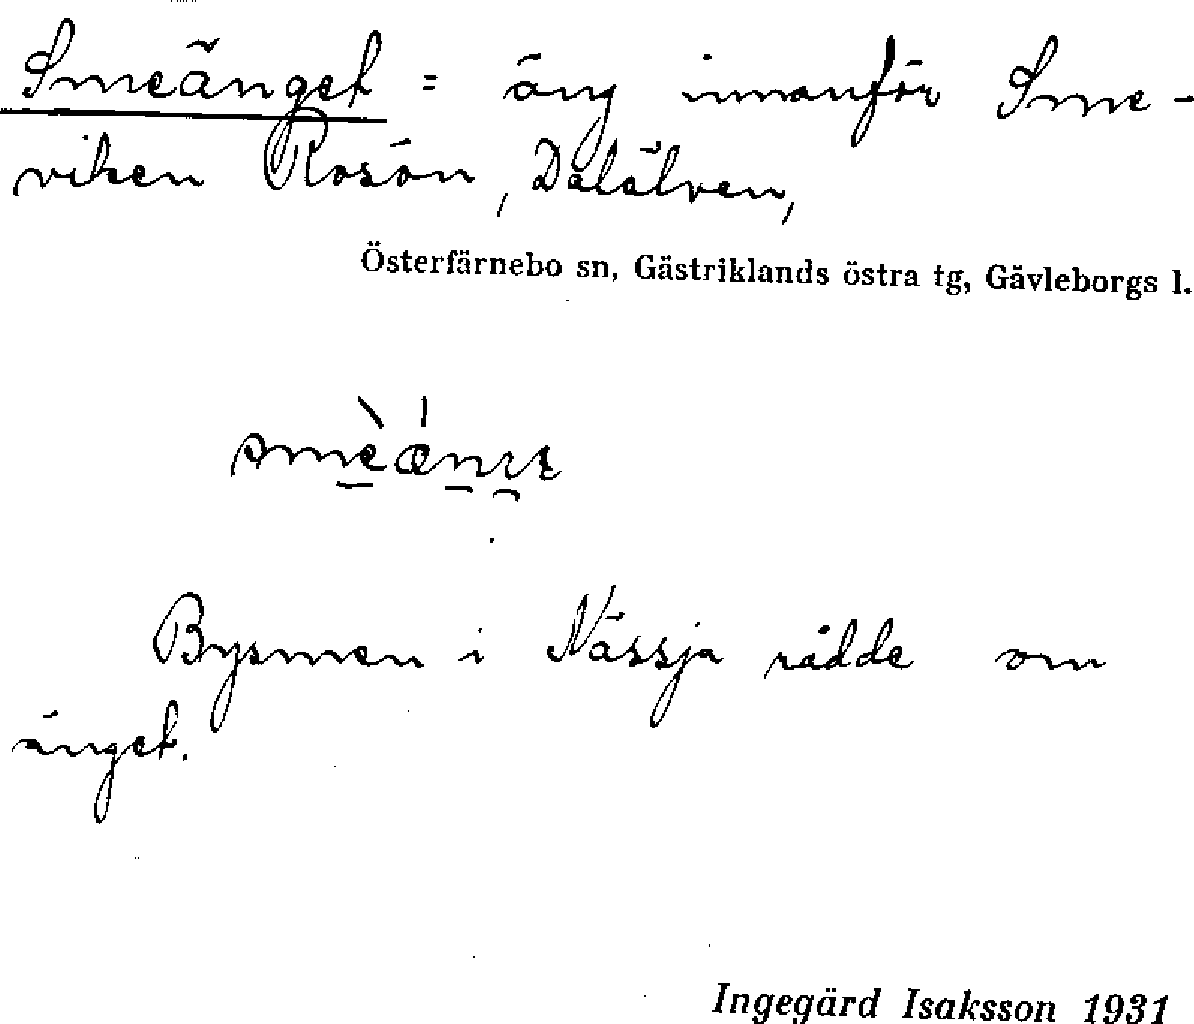 Smeänget = äng innanför Sme-
viken Rosön, Dalälven,
Österfärnebo sn, Gästriklands östra tg, Gävleborgs l.
Bysmen i Nässja rådde om
änget.
Ingegärd Isaksson 1931